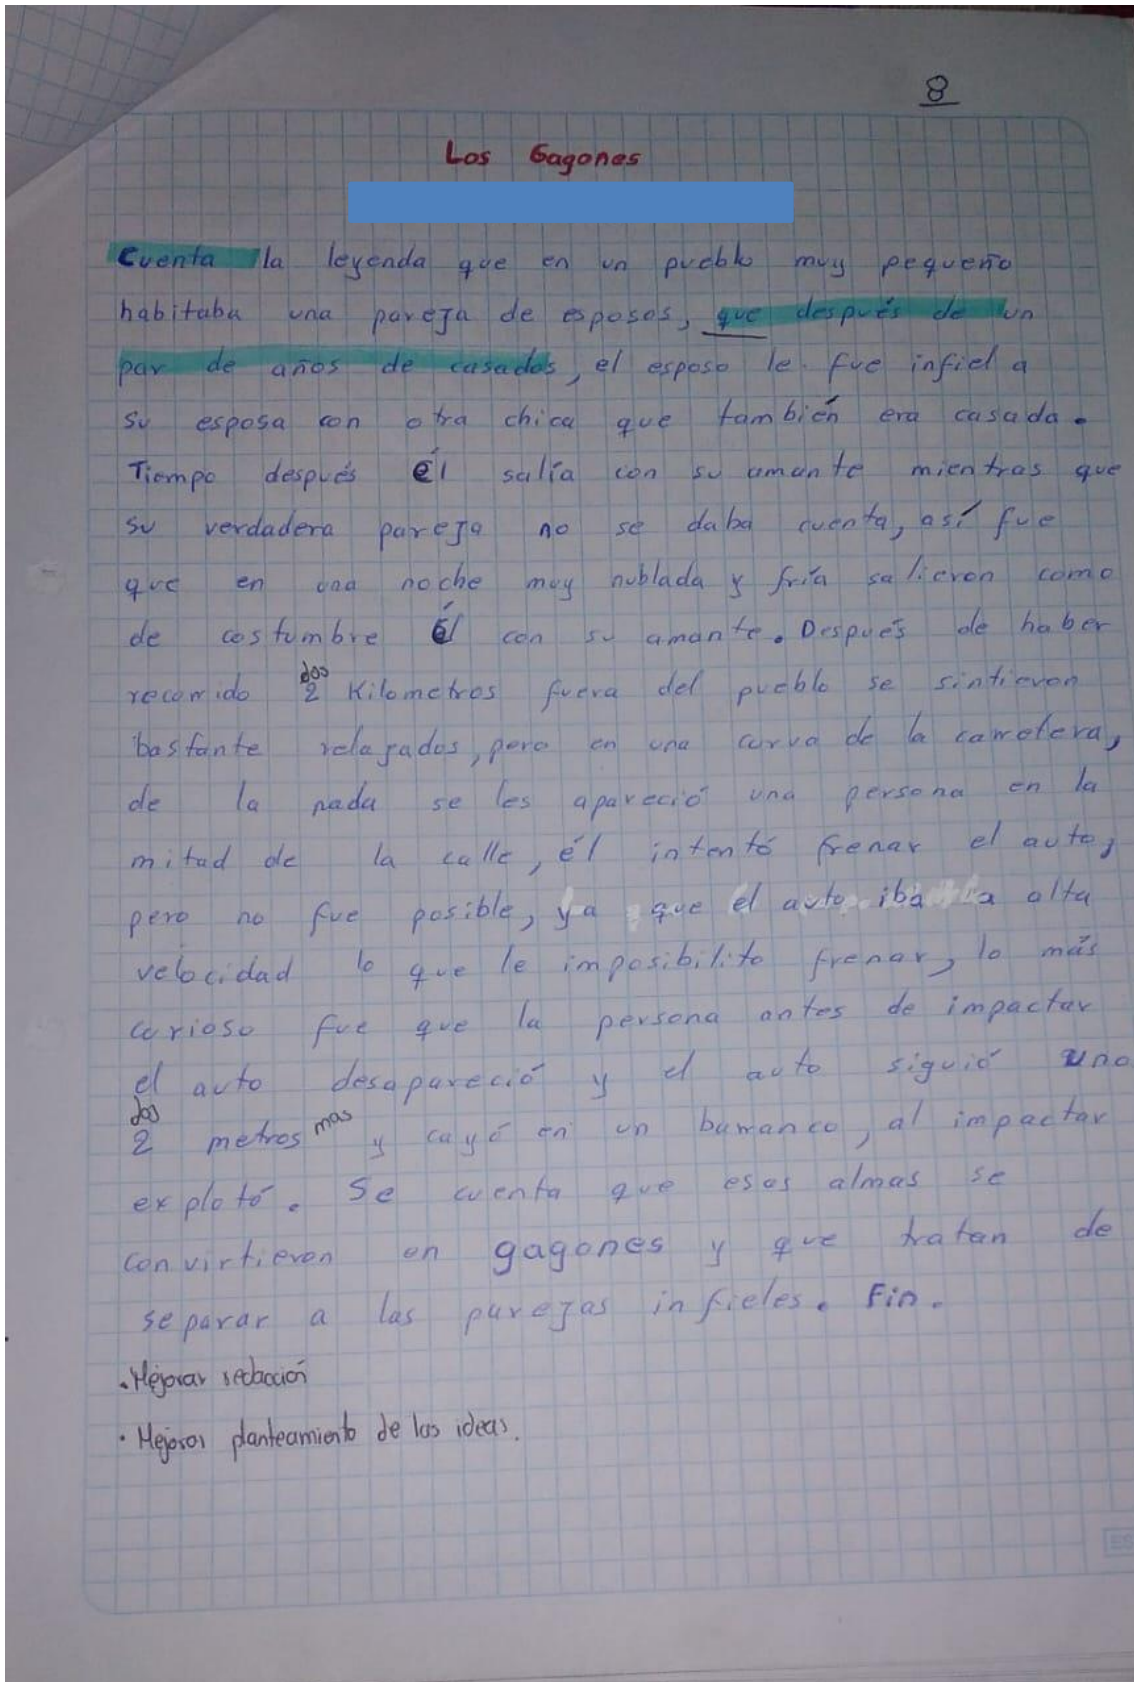 8
Los Gagones
Cuenta la leyenda que en un pueblo muy pequeño
habitaba una pareja de esposos, que después de un
par de años de casados, el esposo le fue infiel a
su esposa con otra chica que también era casada.
Tiempo después él salía con su amante mientras que
su verdadera pareja no se daba cuenta, así fue
que en una noche muy nublada y fría salieron como
de costumbre él con su amante. Después de haber
dos
recorrido 2 Kilometros fuera del pueblo se sintieron
bastante relajados, pero en una curva de la carretera,
de la nada se les apareció una persona en la
mitad de la calle, él intentó frenar el auto,
pero no fue posible, ya que el auto iba a alta
velocidad lo que le imposibilito frenar, lo más
curioso fue que la persona antes de impactar
el auto desapareció y el auto siguió uno
dos mas
2 metros y cayó en un barranco, al impactar
explotó. Se cuenta que esas almas se
convirtieron en gagones y que tratan de
separar a las parejas infieles. Fin.
• Mejorar redacción
• Mejorar planteamiento de las ideas.